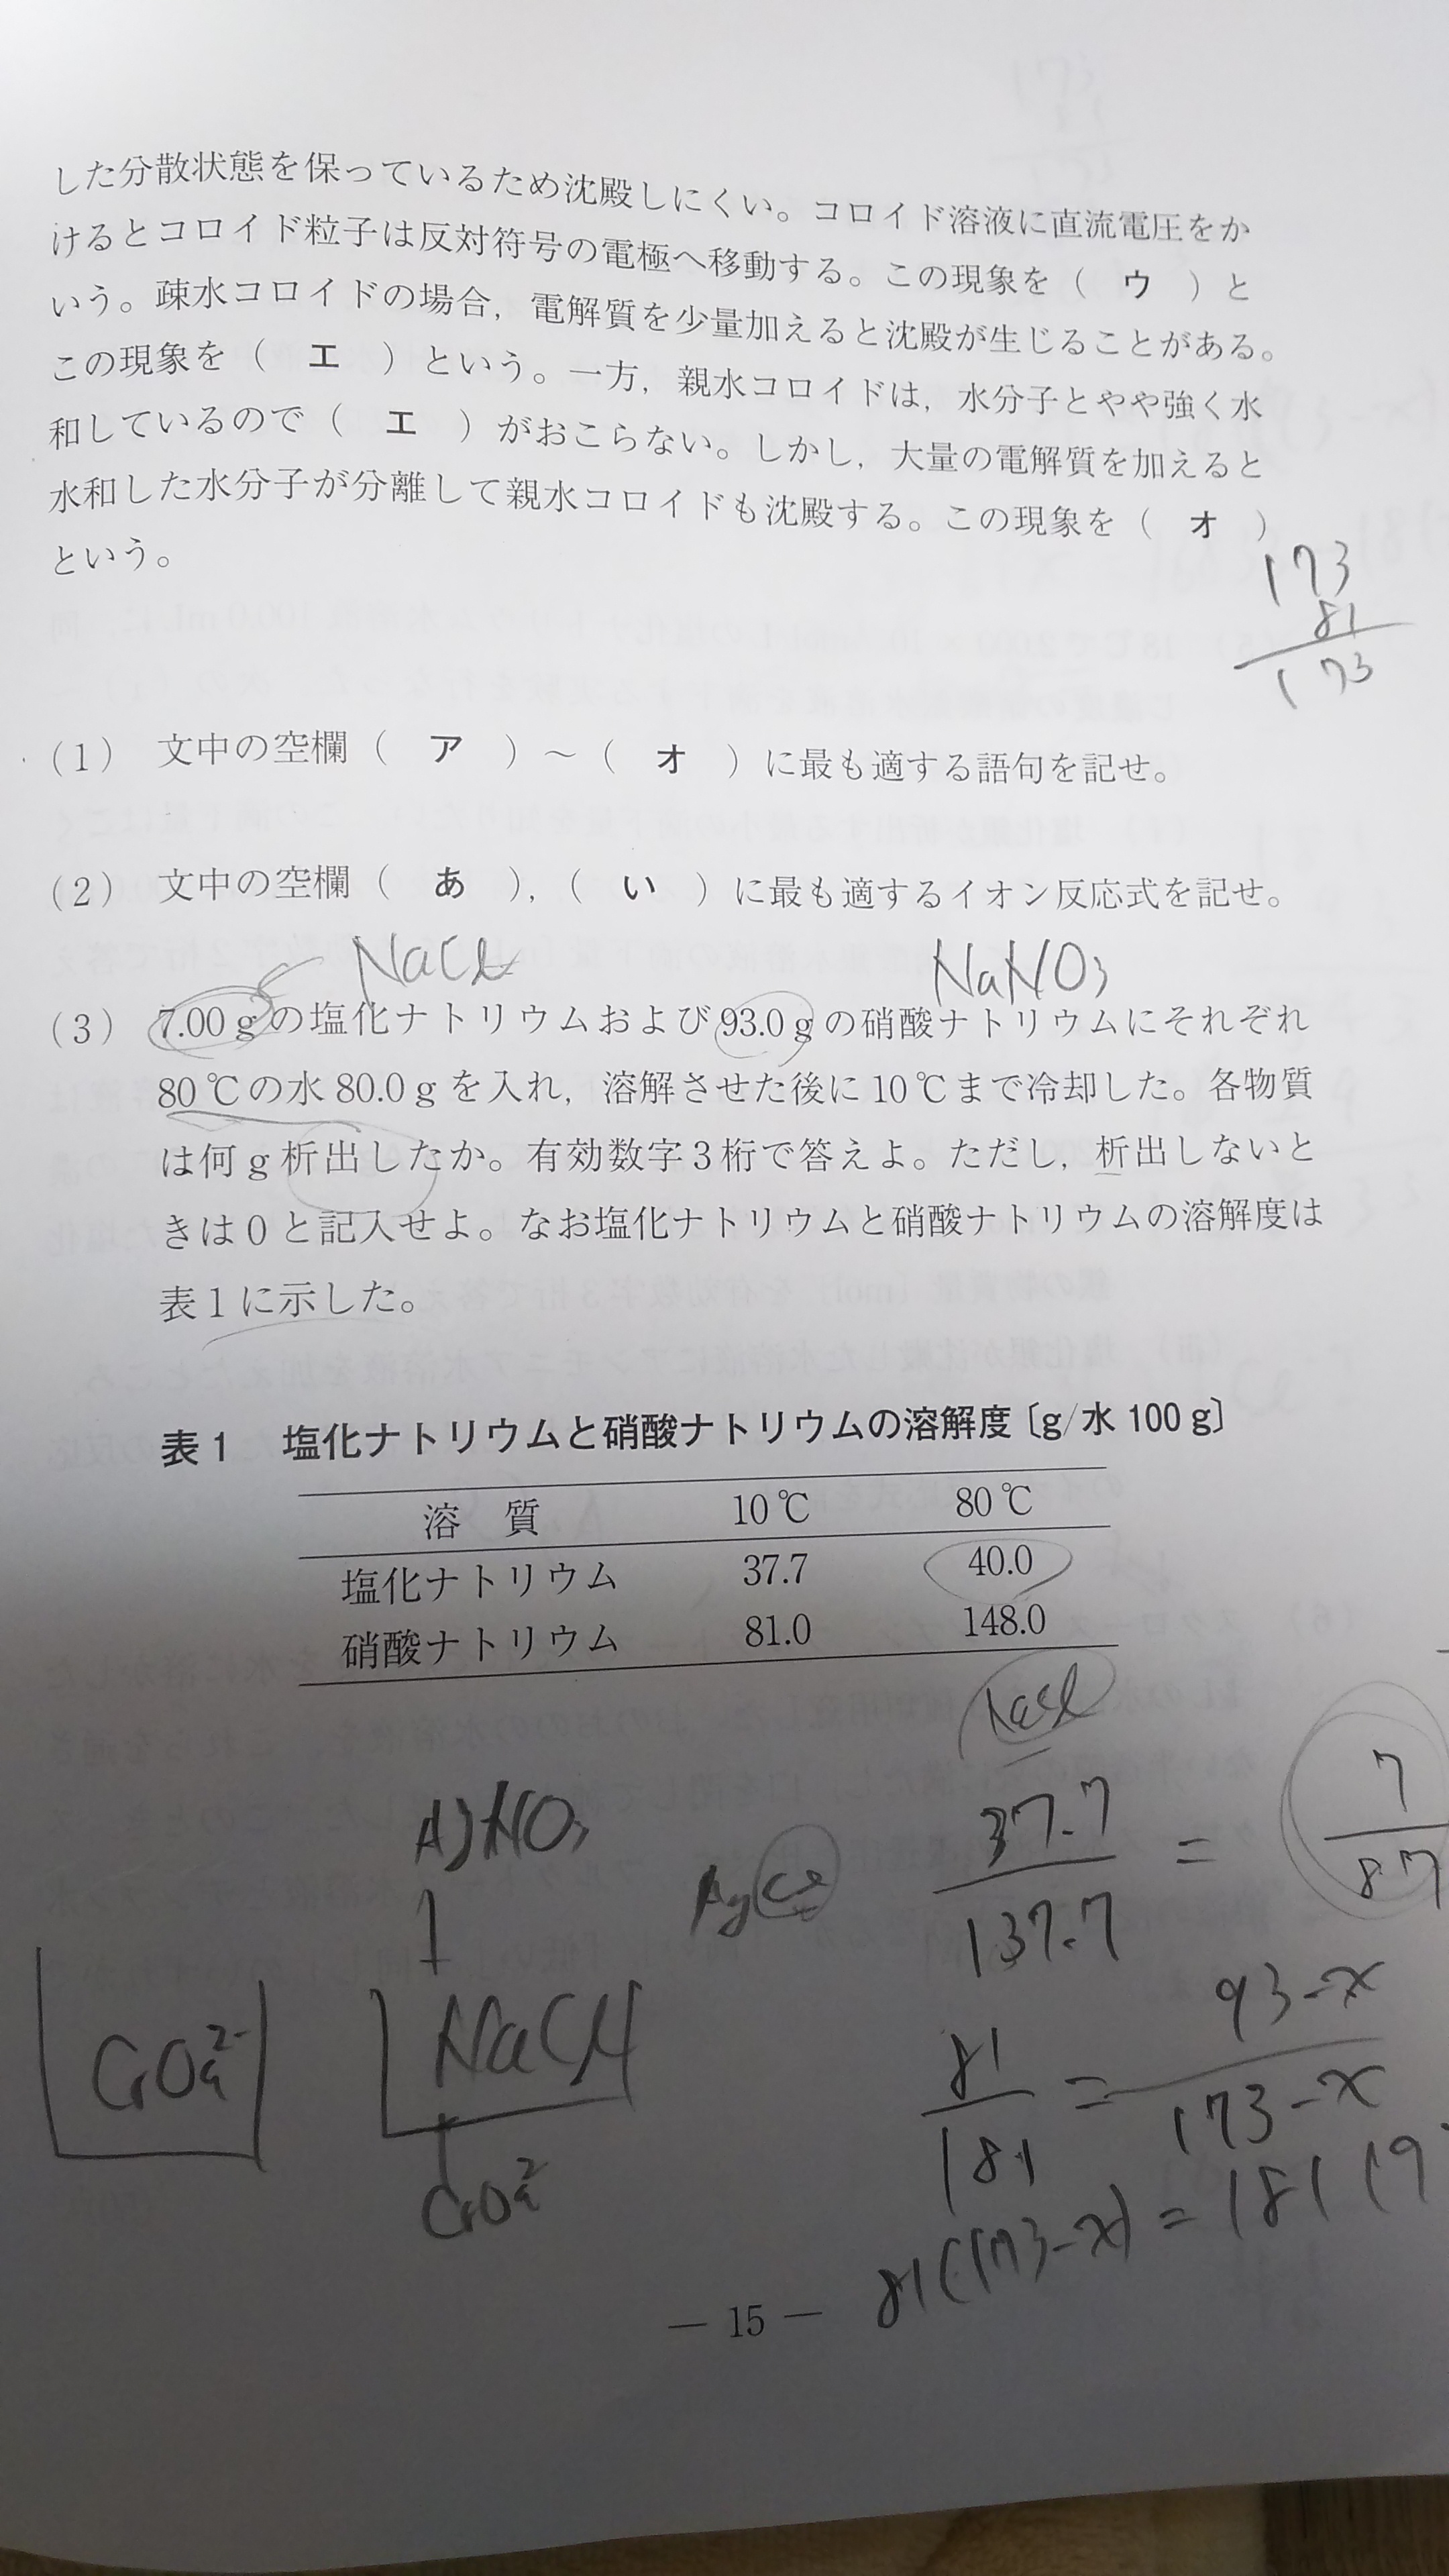 した分散状態を保っているため沈殿しにくい。コロイド溶液に直流電圧をか
けるとコロイド粒子は反対符号の電極へ移動する。この現象を（　ウ　）と
いう。疎水コロイドの場合，電解質を少量加えると沈殿が生じることがある。
この現象を（　エ　）という。一方，親水コロイドは，水分子とやや強く水
和しているので（　エ　）がおこらない。しかし，大量の電解質を加えると
水和した水分子が分離して親水コロイドも沈殿する。この現象を（　オ　）
という。
173
81
173
（1）　文中の空欄（　ア　）～（　オ　）に最も適する語句を記せ。
（2）　文中の空欄（　あ　），（　い　）に最も適するイオン反応式を記せ。
NaCl　NaNO3
（3）　7.00 g の塩化ナトリウムおよび 93.0 g の硝酸ナトリウムにそれぞれ
80 ℃の水 80.0 g を入れ，溶解させた後に 10 ℃まで冷却した。各物質
は何 g 析出したか。有効数字 3 桁で答えよ。ただし，析出しないと
きは 0 と記入せよ。なお塩化ナトリウムと硝酸ナトリウムの溶解度は
表 1 に示した。
表 1　塩化ナトリウムと硝酸ナトリウムの溶解度〔g/水 100 g〕
溶　質　10 ℃　80 ℃
塩化ナトリウム　37.7　40.0
硝酸ナトリウム　81.0　148.0
NaCl
AgNO3
37.7 / 137.7 = 7 / 87
81 / 181 = 93-x / 173-x
CrO4 2-
NaCl
CrO4 2-
81(173-x) = 181(9
— 15 —